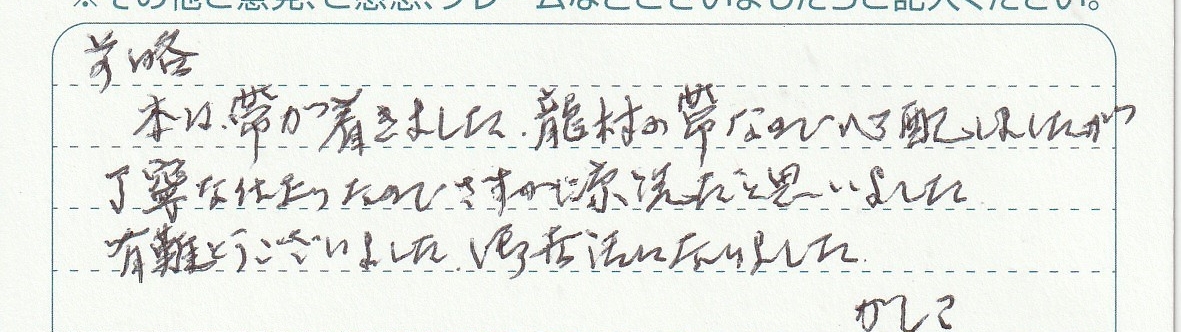 ※その他ご意見、ご感想、クレームなどございましたらご記入ください。
前略
本日、帯が着きました。龍村の帯なので心配しましたが
丁寧な仕立ったので さすがに京洗だと思いました
有難とうございました。御世話になりました。
かしこ